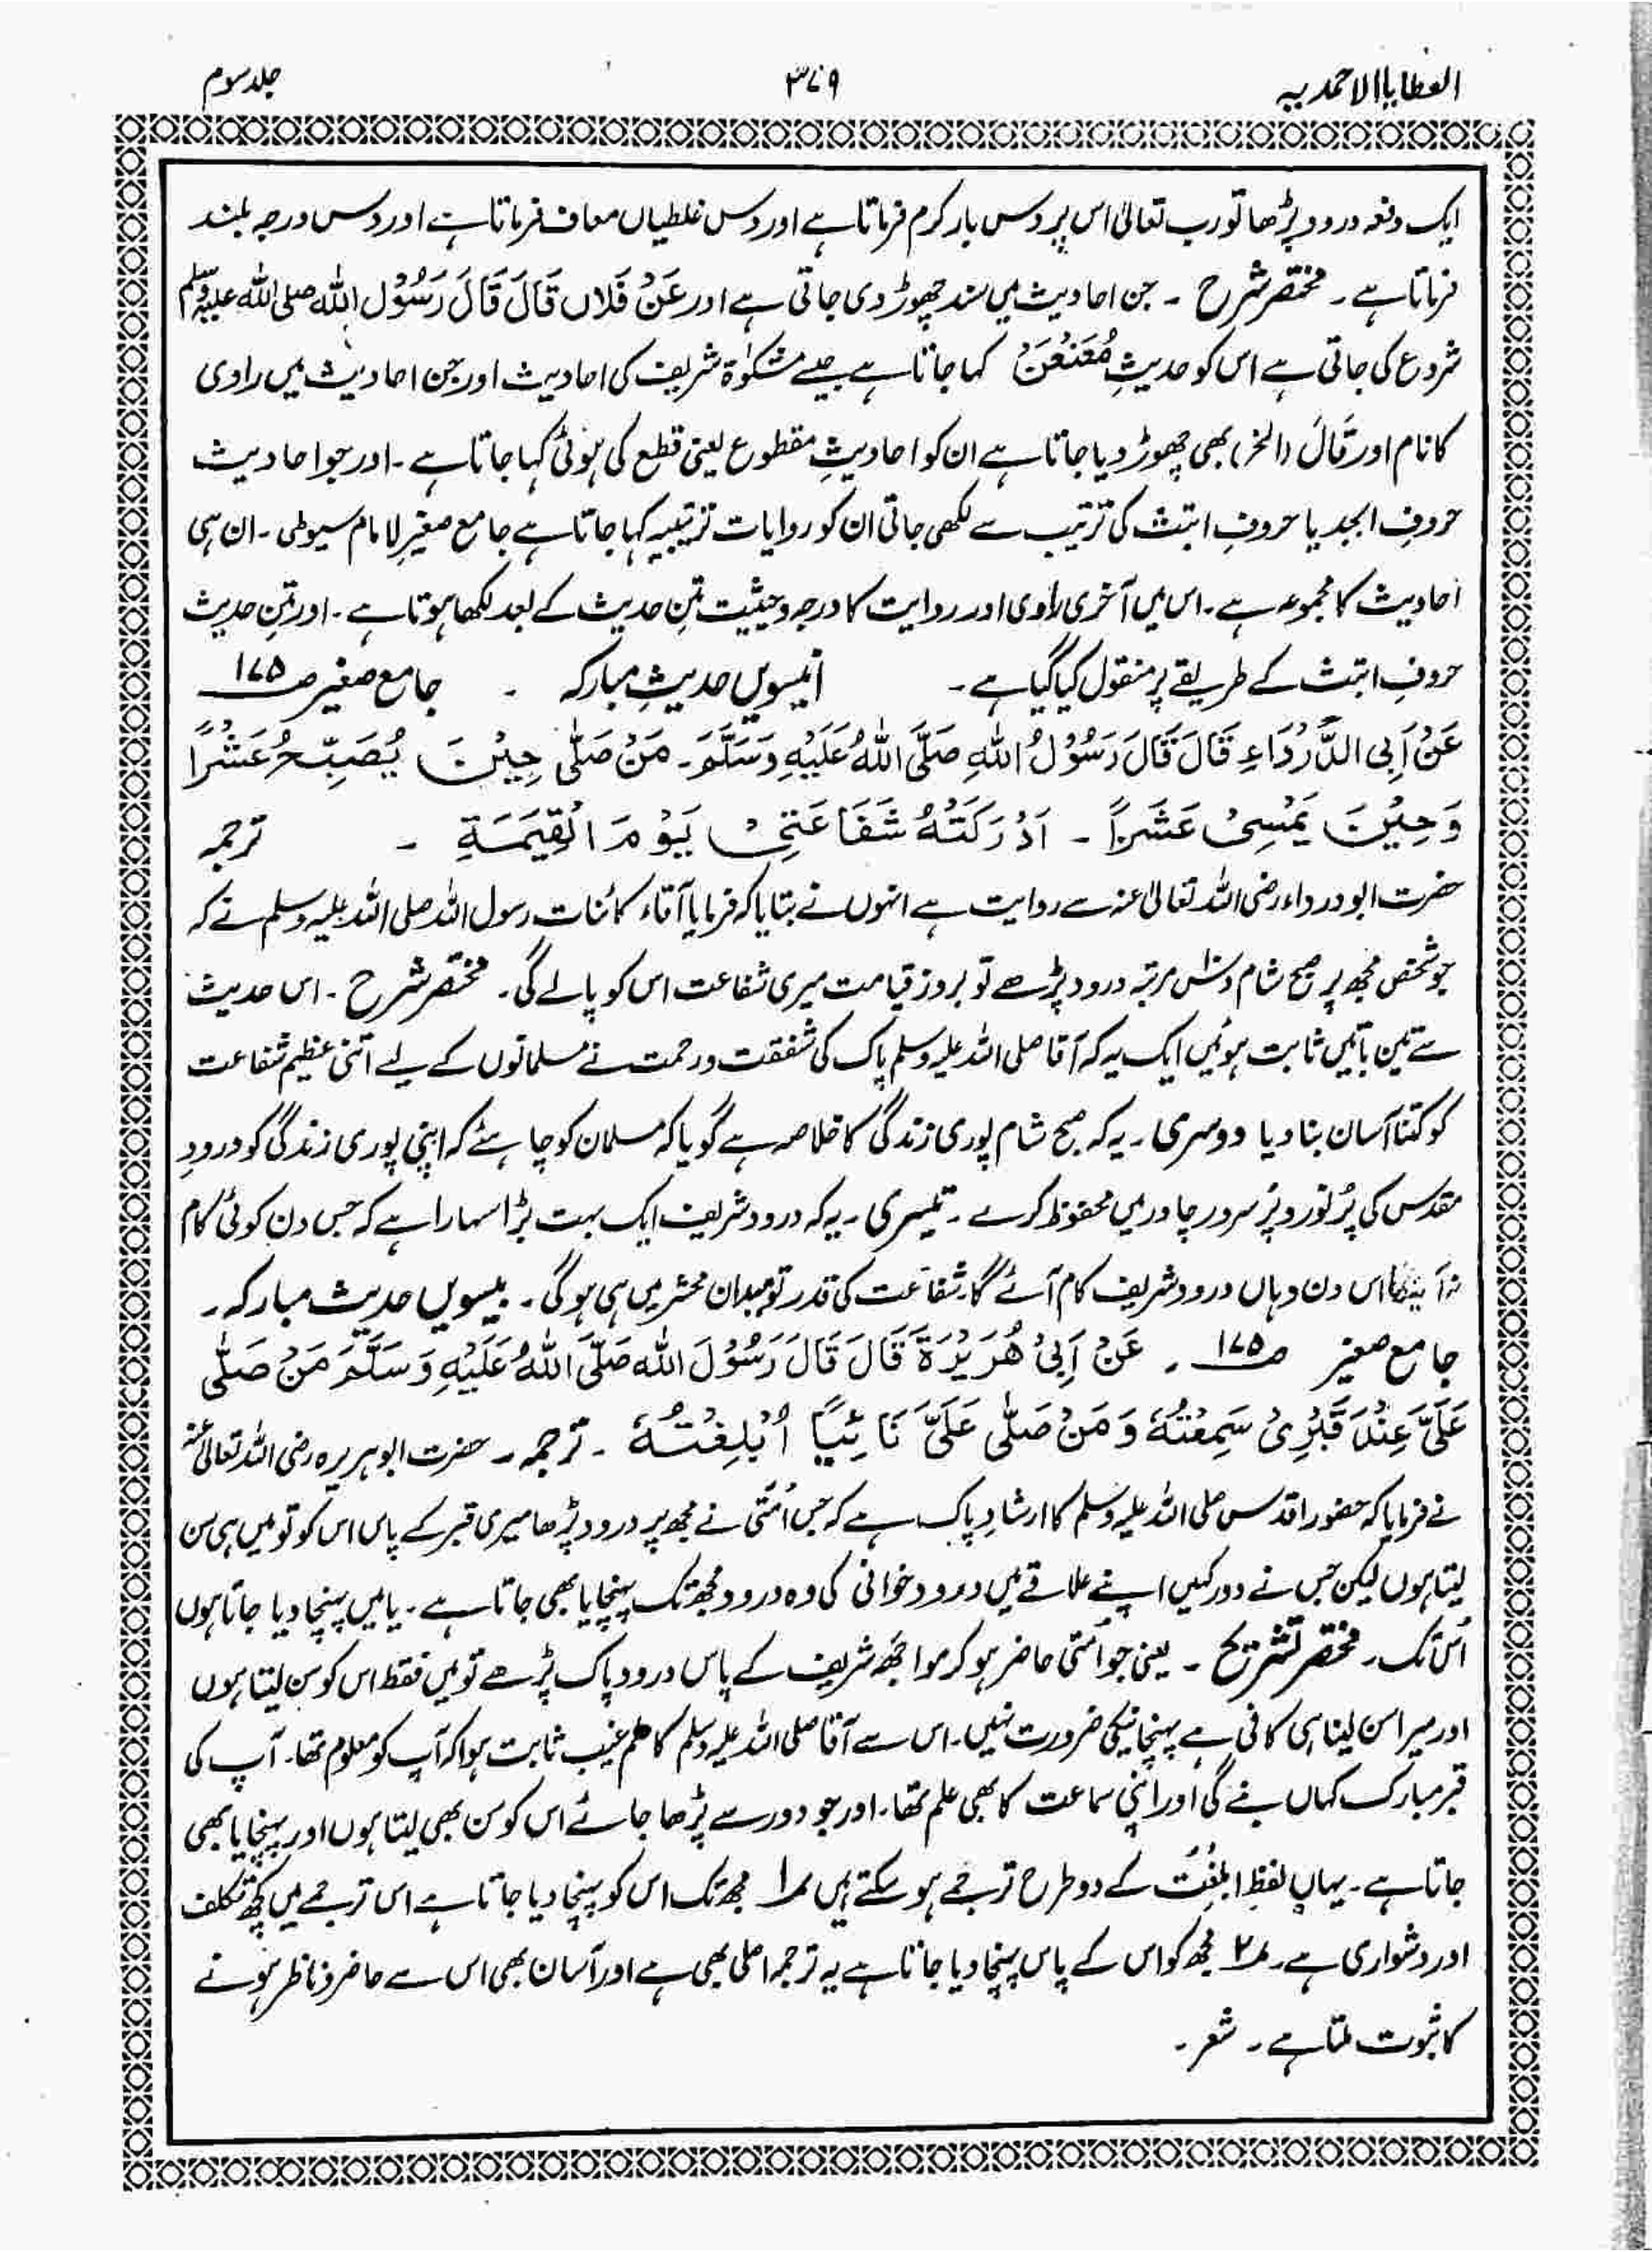 العطایا الاحمدیہ ۳۷۹ جلد سوم
ایک دفعہ درود پڑھا تو رب تعالیٰ اس پر دس بار کرم فرماتا ہے اور دس غلطیاں معاف فرماتا ہے اور دس درجہ بلند
فرماتا ہے ۔ مختصر شرح ۔ جن احادیث میں سند چھوڑ دی جاتی ہے اور عَنْ فَلاں قَالَ قَالَ رَسُوْل اللہ صلی اللہ علیہ وسلم
شروع کی جاتی ہے اس کو حدیثِ مُعَنْعَنْ کہا جاتا ہے جیسے مشکوٰۃ شریف کی احادیث اور جن احادیث میں راوی
کا نام اور قَالَ (الخ) بھی چھوڑ دیا جاتا ہے ان کو احادیثِ مقطوع یعنی قطع کی ہوئی کہا جاتا ہے ۔ اور جو احادیث
حروفِ ابجد یا حروفِ ابتث کی ترتیب سے لکھی جاتی ان کو روایات ترتیبیہ کہا جاتا ہے جامع صغیر لامام سیوطی ۔ ان ہی
احادیث کا مجموعہ ہے ۔ اس میں آخری راوی اور روایت کا درجہ و حیثیت متنِ حدیث کے بعد لکھا ہوتا ہے ۔ اور متنِ حدیث
حروفِ ابتث کے طریقے پر منقول کیا گیا ہے ۔ انیسویں حدیثِ مبارکہ ۔ جامع صغیر صـ ۱۷۵
عَنْ اَبِی الدَّرْدَاءِ قَالَ قَالَ رَسُوْلُ اللہِ صَلَّی اللہُ عَلَیْہِ وَسَلَّمَ ۔ مَنْ صَلّٰی حِیْنَ یُصَبِّحُ عَشْرًا
وَحِیْنَ یَمْسِیْ عَشَرًا ۔ اَدْرَکَتْہُ شَفَاعَتِیْ یَوْمَ الْقِیٰمَۃِ ۔ ترجمہ
حضرت ابو درداء رضی اللہ تعالیٰ عنہ سے روایت ہے انہوں نے بتایا کہ فرمایا آقاء کائنات رسول اللہ صلی اللہ علیہ وسلم نے کہ
جو شخص مجھ پر صبح شام دس دس مرتبہ درود پڑھے تو بروز قیامت میری شفاعت اس کو پالے گی ۔ مختصر شرح ۔ اس حدیث
سے تین باتیں ثابت ہوئیں ایک یہ کہ آقا صلی اللہ علیہ وسلم پاک کی شفقت ورحمت نے مسلمانوں کے لیے اتنی عظیم شفاعت
کو کتنا آسان بنا دیا دوسری ۔ یہ کہ صبح شام پوری زندگی کا خلاصہ ہے گویا کہ مسلمان کو چاہئے کہ اپنی پوری زندگی کو درودِ
مقدس کی پُرنور و پُرسرور چادر میں محفوظ کرے ۔ تیسری ۔ یہ کہ درود شریف ایک بہت بڑا سہارا ہے کہ جس دن کوئی کام
نہ آئیگا اس دن وہاں درود شریف کام آئے گا ۔ شفاعت کی قدر تو میدان محشر میں ہی ہوگی ۔ بیسویں حدیث مبارکہ ۔
جامع صغیر صـ ۱۷۵ ۔ عَنْ اَبِیْ ھُرَیْرَۃَ قَالَ قَالَ رَسُوْلَ اللہ صَلَّی اللہُ عَلَیْہِ وَسَلَّمَ مَنْ صَلّٰی
عَلَیَّ عِنْدَ قَبْرِیْ سَمِعْتُہٗ وَ مَنْ صَلّٰی عَلَیَّ نَائِیًا اُبْلِغْتُہٗ ۔ ترجمہ ۔ حضرت ابوہریرہ رضی اللہ تعالیٰ عنہ
نے فرمایا کہ حضور اقدس صلی اللہ علیہ وسلم کا ارشادِ پاک ہے کہ جس اُمّتی نے مجھ پر درود پڑھا میری قبر کے پاس اس کو تو میں ہی سن
لیتا ہوں لیکن جس نے دور کہیں اپنے علاقے میں درود خوانی کی وہ درود مجھ تک پہنچایا بھی جاتا ہے ۔ یا میں پہنچا دیا جاتا ہوں
اُس تک ۔ مختصر تشریح ۔ یعنی جو اُمتی حاضر ہو کر مواجھہ شریف کے پاس درود پاک پڑھے تو میں فقط اس کو سن لیتا ہوں
اور میرا سن لینا ہی کافی ہے پہنچانیکی ضرورت نہیں ۔ اس سے آقا صلی اللہ علیہ وسلم کا علم غیب ثابت ہوا کہ آپ کو معلوم تھا ۔ آپ کی
قبر مبارک کہاں بنے گی اور اپنی سماعت کا بھی علم تھا ۔ اور جو دور سے پڑھا جائے اس کو سن بھی لیتا ہوں اور پہنچایا بھی
جاتا ہے ۔ یہاں لفظِ ابلغت کے دو طرح ترجمے ہو سکتے ہیں ۱؎ مجھ تک اس کو پہنچا دیا جاتا ہے اس ترجمے میں کچھ تکلف
اور دشواری ہے ۔ ۲؎ مجھ کو اس کے پاس پہنچا دیا جاتا ہے یہ ترجمہ اصلی بھی ہے اور آسان بھی اس سے حاضر و ناظر ہونے
کا ثبوت ملتا ہے ۔ شعر ۔